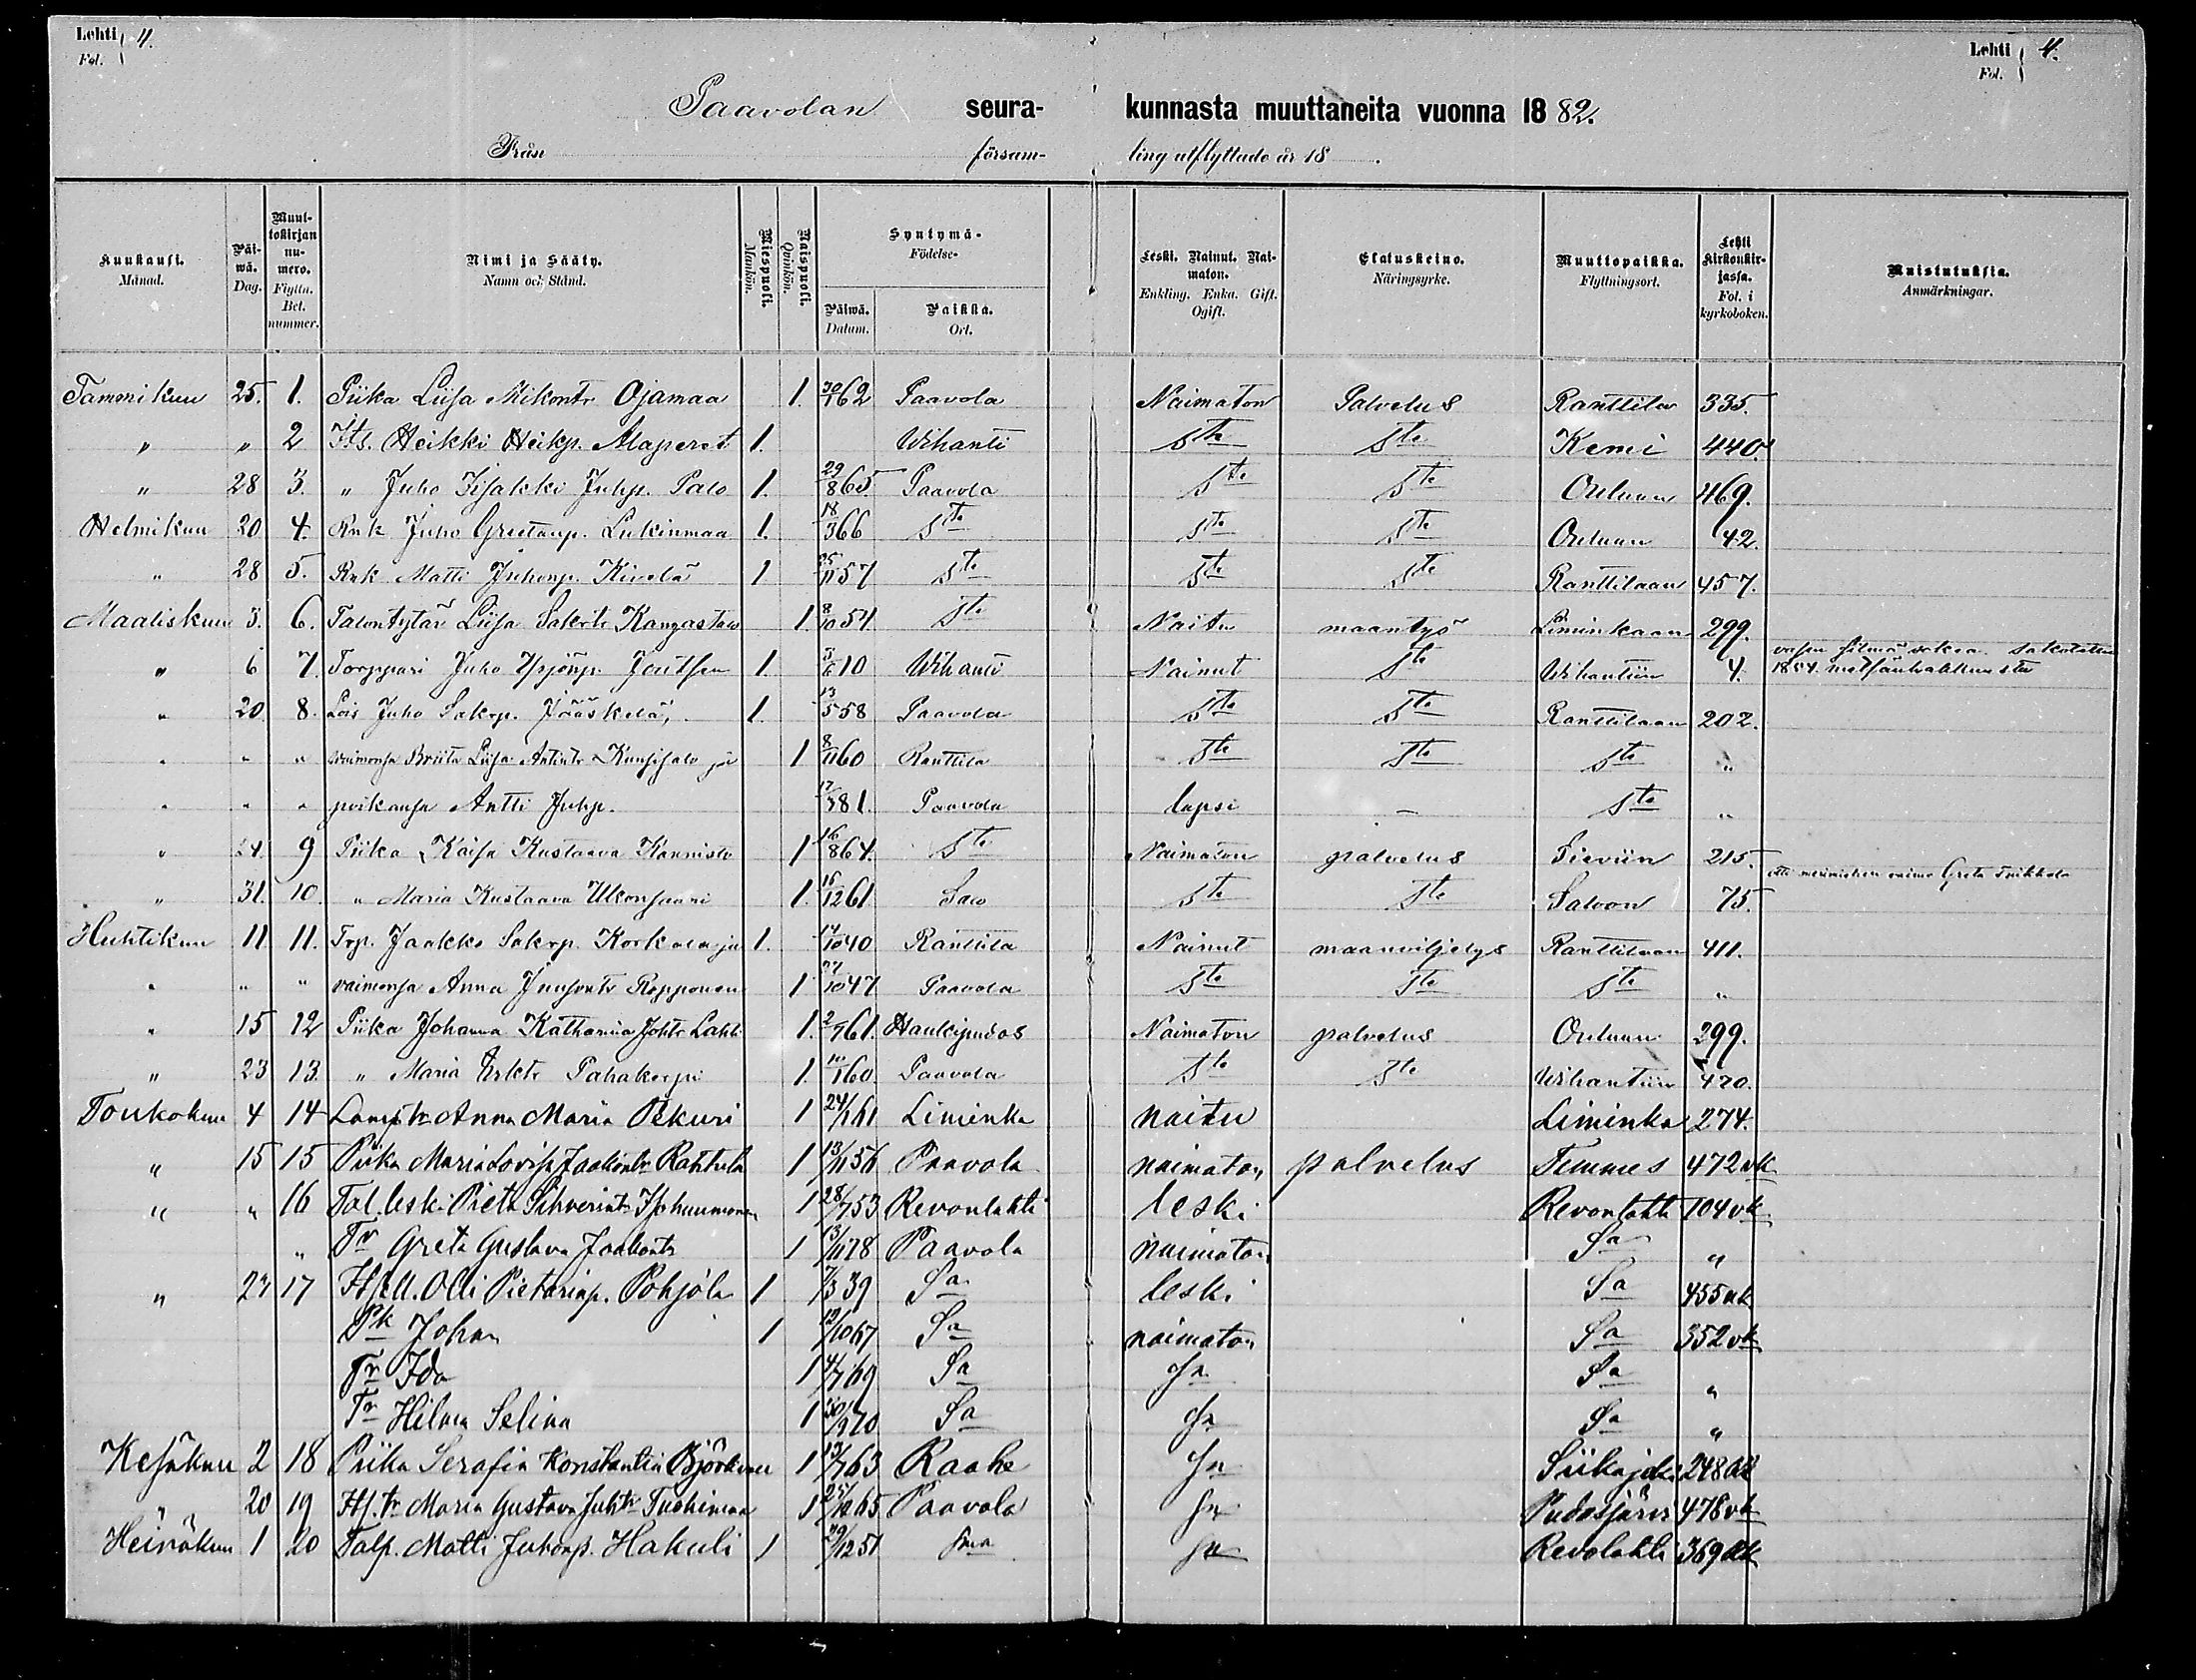 Lehti 4. Lehti 4.
Fol. Fol.
Paavolan seura- kunnasta muuttaneita vuonna 18 82.
Från försam- ling utflyttade år 18 .
Kuukausi. Månad. Päi-wä. Dag. Muut-tokirjan nu-mero. Flyttn. Bet. nummer. Nimi ja Sääty. Namn och Stånd. Miespuoli. Mankön. Naispuoli. Qvinkön. Syntymä- Födelse- Päiwä. Datum. Paikka. Ort. Leski. Nainut. Nai-maton. Enkling. Enka. Gift. Ogift. Elatuskeino. Näringsyrke. Muuttopaikka. Flyttningsort. Lehti Kirkonkir-jassa. Fol. i kyrkoboken. Muistutuksia. Anmärkningar.
Tammikuu 25. 1. Piika Liisa Mikontr Ojamaa 1. 30/1 62 Paavola Naimaton Palvelus Ranttila 335.
" " 2 Its. Heikki Heikp. Alaperet 1. Wihanti Ste Ste Kemi 440.
" 28 3. " Juho Iisakki Juhp. Palo 1. 29/8 65 Paavola Ste Ste Ouluun 469.
Helmikuu 20 4. Rnk Juho Gretanp. Lukinmaa 1. 18/3 66 Ste Ste Ste Ouluun 42.
" 28 5. Rnk Matti Juhonp. Kivelä 1 25/11 57 Ste Ste Ste Ranttilaan 457.
Maaliskuu 3. 6. Talontytär Liisa Sakrtr Kangastalo 1. 8/10 54 Ste Naitu maantyö Liminkaan 299.
" 6 7. Torppari Juho Joutsen 1. 3/6 10 Wihanti Nainut Ste Wihantiin 4. sokea. sakotettu 1854 metsänhakkuusta
" 20 8. Lois Juho Sakrp. Jääskelä, 1. 13/5 58 Paavola Ste Ste Ranttilaan 202.
" " " vaimonsa Briita Liisa Antintr Kuusisalo ja 1 8/11 60 Ranttila Ste Ste Ste "
" " " poikansa Antti Juhp. 17/7 81. Paavola lapsi — Ste "
" 24. 9 Piika Kaisa Kustaava Kannisto 1 16/8 64. Ste Naimaton palvelus Sieviin 215.
" 31. 10. " Maria Kustaava Ulkonsaari 1. 15/12 61. Salo Ste Ste Saloon 75. merimiehen vaimo Greta
Huhtikuu 11 11. Trp. Jaakko Sakrp. Korkala ja 1. 14/10 40 Ranttila Nainut maanviljelys Ranttilaan 411.
" " " vaimonsa Anna Juhontr Repponen 1 27/10 47 Paavola Ste Ste Ste "
" 15 12 Piika Johanna Katharina Johtr Lahti 1. 2/7 61. Haukipudas Naimaton palvelus Ouluun 299.
" 23 13. " Maria Erktr Pahakorpi 1. 10/1 60. Paavola Ste Ste Wihantiin 420.
Toukokuu 4 14 Lamptr Anna Maria Pekuri 1 24/1 61 Liminka naitu Liminka 274.
" 15 15 Piika Maria Lovisa Jaakontr Rahtula 1 13/11 56 Paavola naimaton palvelus Temmes 472 vk
" " 16 Tal. leski Pieta 1 28/7 53 Revonlahti leski Revonlahti 104 vk
" Tr Greta Gustava Jaakontr 1 13/11 78 Paavola naimaton Sa "
" 27 17 Itsell. Olli Pietarinp. Pohjola 1 7/3 39 Sa leski Sa 455 uk
Pk Johan 1 12/10 67 Sa naimaton Sa 352 vk
Tr Ida 1 4/7 69 Sa Sa Sa "
Tr Hilma Selina 1 30/9 70 Sa Sa Sa "
Kesäkuu 2 18 Piika Serafia Konstantia Björkman 1 13/7 63 Raahe Sa Siikajoki 248 uk
" 20 19 Itstr Maria Gustava Juhtr Tuohimaa 1 25/12 65 Paavola Sa Pudasjärvi 478 vk
Heinäkuu 1 20 Talp. Matti Juhonp. Hakuli 1 29/12 51 Sama Sa Revolahti 369 uk